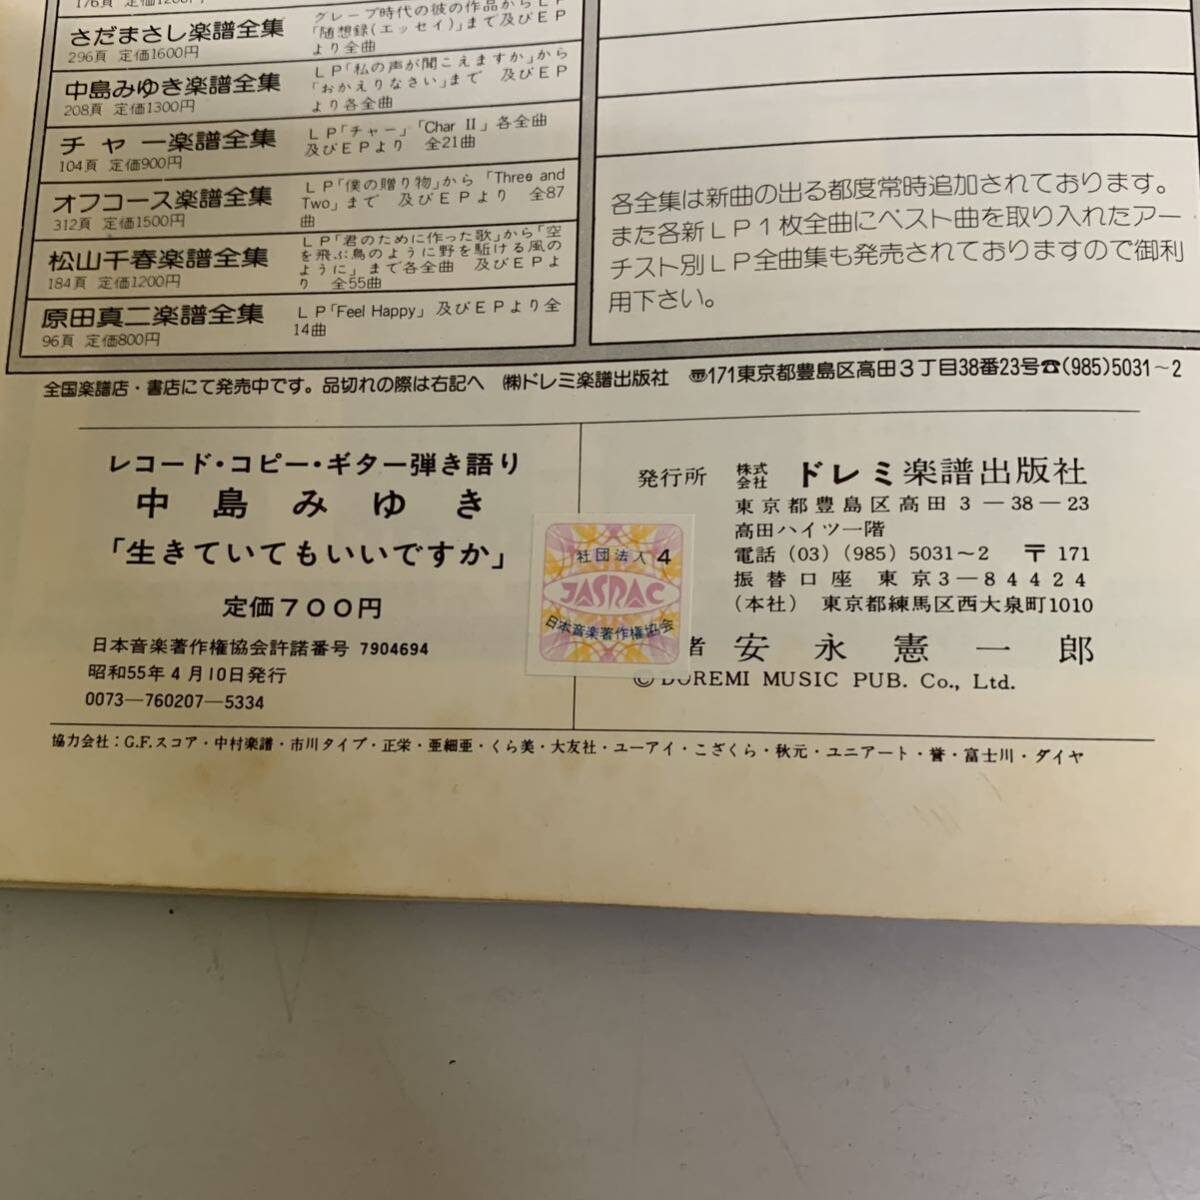 176頁 定価1200円
さだまさし楽譜全集
296頁 定価1600円
グレープ時代の彼の作品からLP
「随想録(エッセイ)」まで及びEP
より全曲
中島みゆき楽譜全集
208頁 定価1300円
LP「私の声が聞こえますか」から
「おかえりなさい」まで 及びEP
より各全曲
チャー楽譜全集
104頁 定価900円
LP「チャー」「Char II」各全曲
及びEPより 全21曲
オフコース楽譜全集
312頁 定価1500円
LP「僕の贈り物」から「Three and
Two」まで 及びEPより 全87
曲
松山千春楽譜全集
184頁 定価1200円
LP「君のために作った歌」から「空
を飛ぶ鳥のように野を駈ける風の
ように」まで各全曲 及びEPよ
り 全55曲
原田真二楽譜全集
96頁 定価800円
LP「Feel Happy」及びEPより全
14曲
各全集は新曲の出る都度常時追加されております。
また各新LP1枚全曲にベスト曲を取り入れたアー
チスト別LP全曲集も発売されておりますので御利
用下さい。
全国楽譜店・書店にて発売中です。品切れの際は右記へ ㈱ドレミ楽譜出版社 〠171東京都豊島区高田3丁目38番23号☎(985)5031～2
レコード・コピー・ギター弾き語り
中島みゆき
「生きていてもいいですか」
定価700円
日本音楽著作権協会許諾番号 7904694
昭和55年4月10日発行
0073—760207—5334
発行所 株式会社 ドレミ楽譜出版社
東京都豊島区高田3—38—23
高田ハイツ一階
電話 (03) (985) 5031～2 〒171
振替口座 東京3—84424
(本社) 東京都練馬区西大泉町1010
者 安永憲一郎
© DOREMI MUSIC PUB. Co., Ltd.
社団法人 4
JASRAC
日本音楽著作権協会
協力会社：G.F.スコア・中村楽譜・市川タイプ・正栄・亜細亜・くら美・大友社・ユーアイ・こざくら・秋元・ユニアート・誉・富士川・ダイヤ